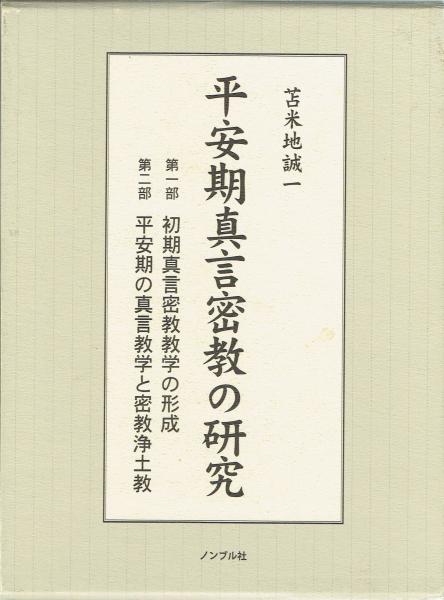 苫米地誠一
平安期真言密教の研究
第一部 初期真言密教教学の形成
第二部 平安期の真言教学と密教浄土教
ノンブル社